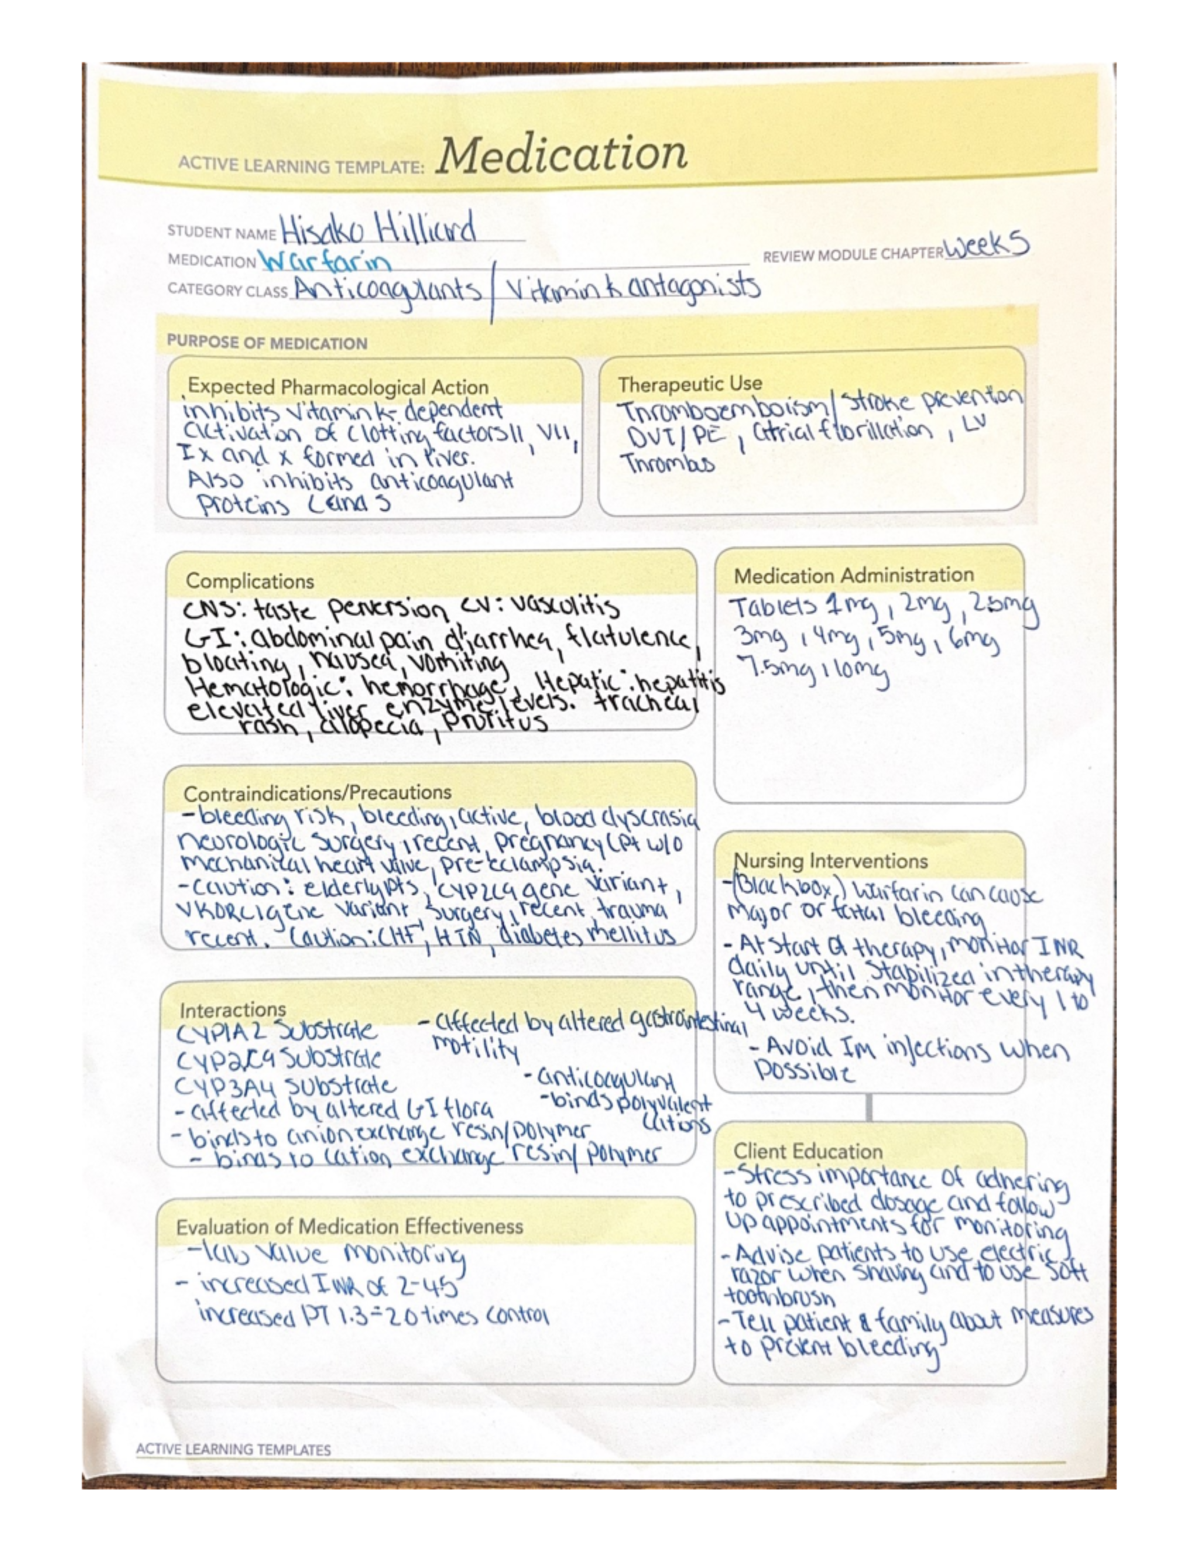 ACTIVE LEARNING TEMPLATE: Medication
STUDENT NAME Hisako Hilliard
MEDICATION Warfarin
REVIEW MODULE CHAPTER Week 5
CATEGORY CLASS Anticoagulants / Vitamin k antagonists
PURPOSE OF MEDICATION
Expected Pharmacological Action
inhibits vitamin k- dependent
activation of clotting factors II, VII,
IX and X formed in liver.
Also inhibits anticoagulant
proteins C and S
Therapeutic Use
Thromboembolism/ stroke prevention
DVT/PE, atrial fibrillation, LV
Thrombus
Complications
CNS: taste perversion CV: vasculitis
GI: abdominal pain, diarrhea, flatulence,
bloating, nausea, vomiting
Hematologic: hemorrhage, Hepatic: hepatitis
elevated liver enzyme levels. tracheal
rash, alopecia, pruritus
Medication Administration
Tablets 1mg, 2mg, 2.5mg
3mg, 4mg, 5mg, 6mg
7.5mg, 10mg
Contraindications/Precautions
- bleeding risk, bleeding, active, blood dyscrasia
neurologic surgery, recent, pregnancy (pt w/o
mechanical heart valve, pre-eclampsia.
- caution: elderly pts, CYP2C9 gene variant,
VKORC1 gene variant, surgery, recent, trauma
recent. Caution: CHF, HTN, diabetes mellitus
Nursing Interventions
- (Blackbox) warfarin can cause
Major or fatal bleeding
- At start of therapy, monitor INR
daily until stabilized in therapy
range, then monitor every 1 to
4 weeks.
- Avoid IM injections when
possible
Interactions
CYP1A2 substrate
CYP2C9 substrate
CYP3A4 substrate
- affected by altered GI flora
- binds to anion exchange resin/polymer
- binds to cation exchange resin/ polymer
- affected by altered gastrointestinal
motility
- anticoagulant
- binds polyvalent
cations
Client Education
- Stress importance of adhering
to prescribed dosage and follow
up appointments for monitoring
- Advise patients to use electric
razor when shaving and to use soft
toothbrush
- Tell patient & family about measures
to prevent bleeding
Evaluation of Medication Effectiveness
- lab value monitoring
- increased INR of 2-4.5
increased PT 1.3-2.0 times control
ACTIVE LEARNING TEMPLATES